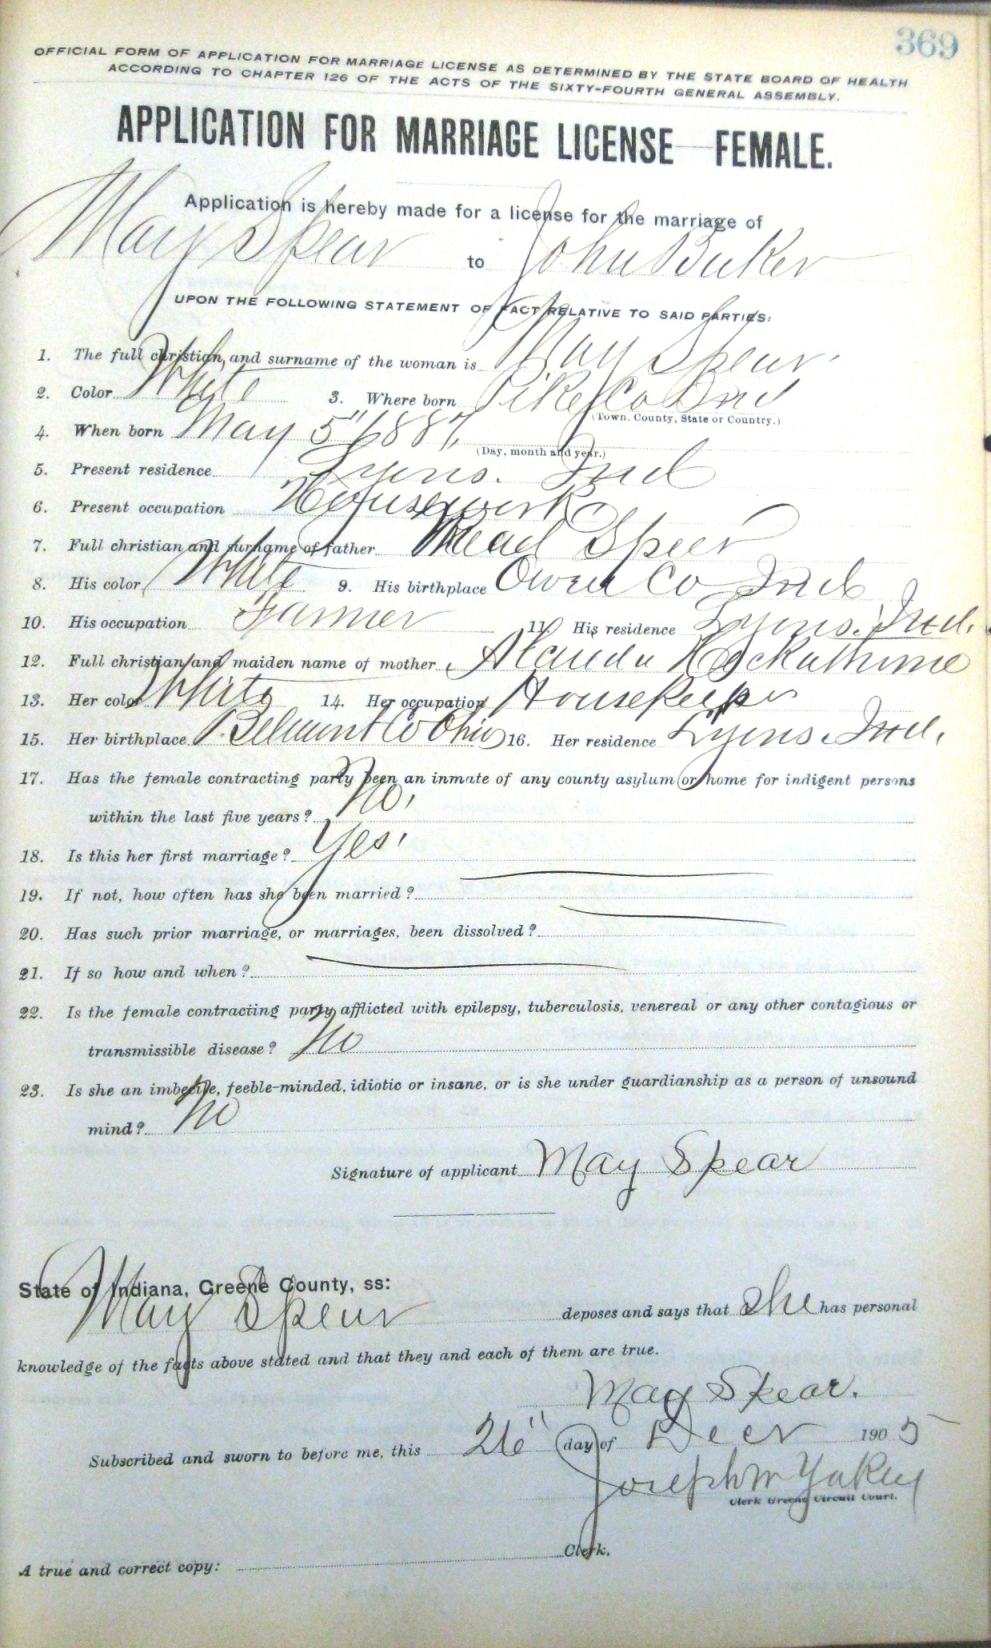 369
OFFICIAL FORM OF APPLICATION FOR MARRIAGE LICENSE AS DETERMINED BY THE STATE BOARD OF HEALTH
ACCORDING TO CHAPTER 126 OF THE ACTS OF THE SIXTY-FOURTH GENERAL ASSEMBLY.
APPLICATION FOR MARRIAGE LICENSE FEMALE.
Application is hereby made for a license for the marriage of
May Spear to John Baker
UPON THE FOLLOWING STATEMENT OF FACT RELATIVE TO SAID PARTIES:
1. The full christian and surname of the woman is May Spear.
2. Color White 3. Where born Pike Co Ind
(Town, County, State or Country.)
4. When born May 5" 1887
(Day, month and year.)
5. Present residence Lyons. Ind
6. Present occupation Housework
7. Full christian and surname of father Mead Spear
8. His color White 9. His birthplace Owen Co Ind
10. His occupation Farmer 11. His residence Lyons. Ind.
12. Full christian and maiden name of mother
13. Her color White 14. Her occupation Housekeeper
15. Her birthplace Belmont Co Ohio 16. Her residence Lyons. Ind.
17. Has the female contracting party been an inmate of any county asylum or home for indigent persons
within the last five years? No.
18. Is this her first marriage? Yes.
19. If not, how often has she been married?
20. Has such prior marriage, or marriages, been dissolved?
21. If so how and when?
22. Is the female contracting party afflicted with epilepsy, tuberculosis, venereal or any other contagious or
transmissible disease? No
23. Is she an imbecile, feeble-minded, idiotic or insane, or is she under guardianship as a person of unsound
mind? No
Signature of applicant May Spear
State of Indiana, Greene County, ss:
May Spear deposes and says that She has personal
knowledge of the facts above stated and that they and each of them are true.
May Spear.
Subscribed and sworn to before me, this 26" day of Decr 1905
Joseph W Yakey
Clerk Greene Circuit Court.
A true and correct copy: Clerk.